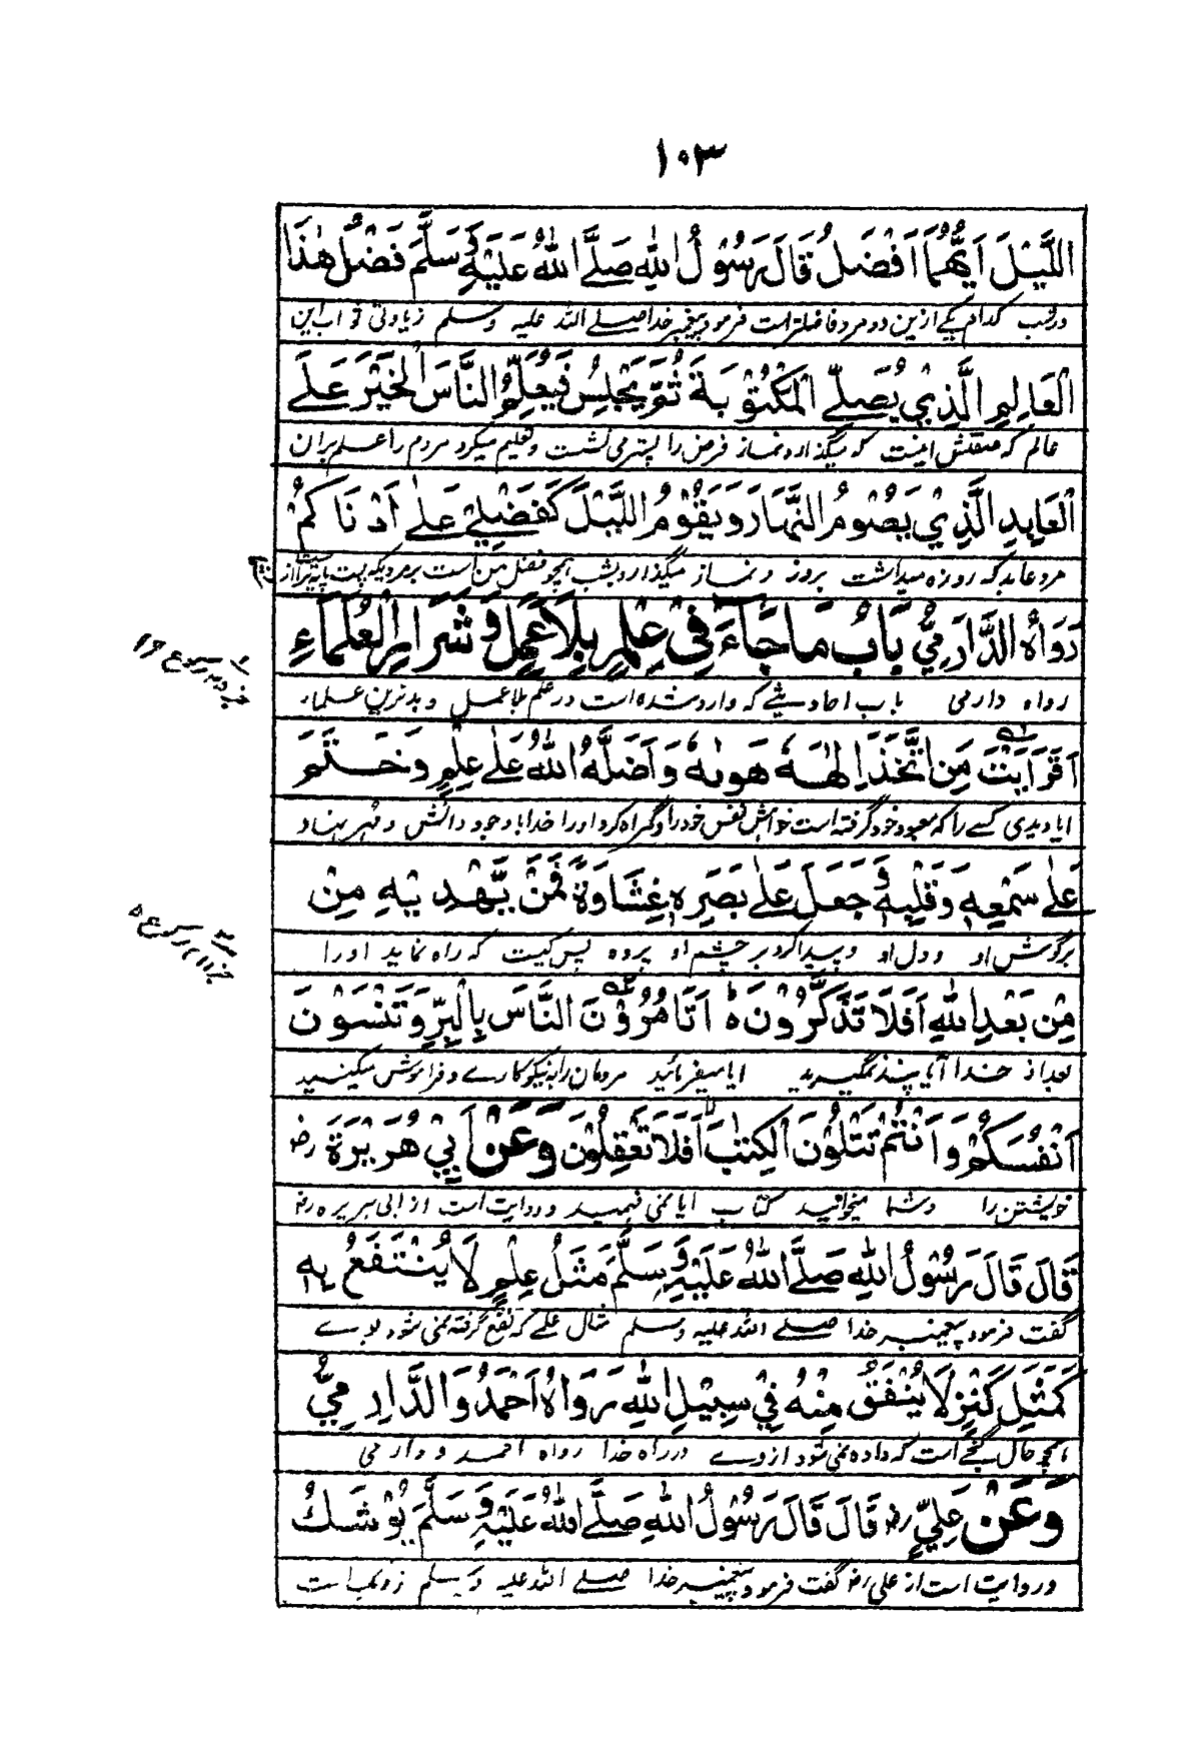 ١٠٣
اللَّيْلَ اَيُّهُمَا اَفْضَلُ قَالَ رَسُوْلُ اللهِ صَلَّے اللهُ عَلَيْهِ وَسَلَّمَ فَضْلُ هٰذَا
در شب کدام یکے ازین دو مرد فاضلتر است فرمود پیغمبر خدا صلے اللہ علیہ وسلم زیادتی ثواب این
الْعَالِمِ الَّذِيْ يُصَلِّے الْمَكْتُوْبَةَ ثُمَّ يَجْلِسُ فَيُعَلِّمُ النَّاسَ الْخَيْرَ عَلَے
عالم که صفتش اینست که میگذارد نماز فرض را پستر می نشست و تعلیم میکرد مردم را علم بران
الْعَابِدِ الَّذِيْ يَصُوْمُ النَّهَارَ وَيَقُوْمُ اللَّيْلَ كَفَضْلِيْ عَلٰے اَدْنَاكُمْ
مرد عابد که روزه میداشت بروز و نماز میگذارد بشب همچو فضل من است بر مردیکه
رَوَاهُ الدَّارَمِيُّ بَابُ مَا جَآءَ فِيْ عِلْمٍ بِلَا عَمَلٍ وَّشَرَارِ الْعُلَمَاءِ
رواه دارمی باب احادیثے که وارد شده است در علم بلا عمل و بدترین علمار
اَفَرَاَيْتَ مَنِ اتَّخَذَ اِلٰهَهٗ هَوٰىهُ وَاَضَلَّهُ اللهُ عَلٰے عِلْمٍ وَخَتَمَ
ایا دیدی کسے را که معبود خود گرفته است خواهش نفس خود را و گمراه کرد او را خدا با وجود دانش و مُهر نهاد
عَلٰے سَمْعِهٖ وَقَلْبِهٖ وَجَعَلَ عَلٰے بَصَرِهٖ غِشَاوَةً فَمَنْ يَّهْدِيْهِ مِنْ
بر گوش او و دل او و پیدا کرد بر چشم او پرده پس کیست که راه نماید او را
مِنْ بَعْدِ اللهِ اَفَلَا تَذَكَّرُوْنَ اَتَاْمُرُوْنَ النَّاسَ بِالْبِرِّ وَتَنْسَوْنَ
بعد از خدا آیا پند نمیگیرید ایا میفرمائید مردمان را به نیکو کارے و فراموش میکنید
اَنْفُسَكُمْ وَاَنْتُمْ تَتْلُوْنَ الْكِتٰبَ اَفَلَا تَعْقِلُوْنَ وَعَنْ اَبِيْ هُرَيْرَةَ رض
خویشتن را و شما میخوانید کتاب ایا نمی فهمید و روایت است از ابی هریره رض
قَالَ قَالَ رَسُوْلُ اللهِ صَلَّے اللهُ عَلَيْهِ وَسَلَّمَ مَثَلُ عِلْمٍ لَا يُنْتَفَعُ بِهٖ
گفت فرمود پیغمبر خدا صلے اللہ علیہ وسلم مثال علمے که نفع گرفته نمی شود بوے
كَمَثَلِ كَنْزٍ لَا يُنْفَقُ مِنْهُ فِيْ سَبِيْلِ اللهِ رَوَاهُ اَحْمَدُ وَالدَّارِمِيُّ
همچو حال گنجے است که داده نمی شود از وے در راه خدا رواه احمد و دارمی
وَعَنْ عَلِيٍّ رض قَالَ قَالَ رَسُوْلُ اللهِ صَلَّے اللهُ عَلَيْهِ وَسَلَّمَ يُوْشَكُ
و روایت است از علی رض گفت فرمود پیغمبر خدا صلے اللہ علیہ وسلم نزدیک است